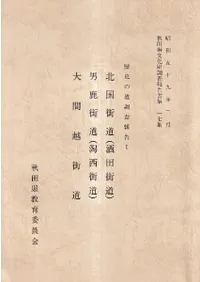 昭和五十九年一月
秋田県文化財調査報告書第一一七集
歴史の道調査報告Ⅰ
北国街道(酒田街道)
男鹿街道(潟西街道)
大間越街道
秋田県教育委員会